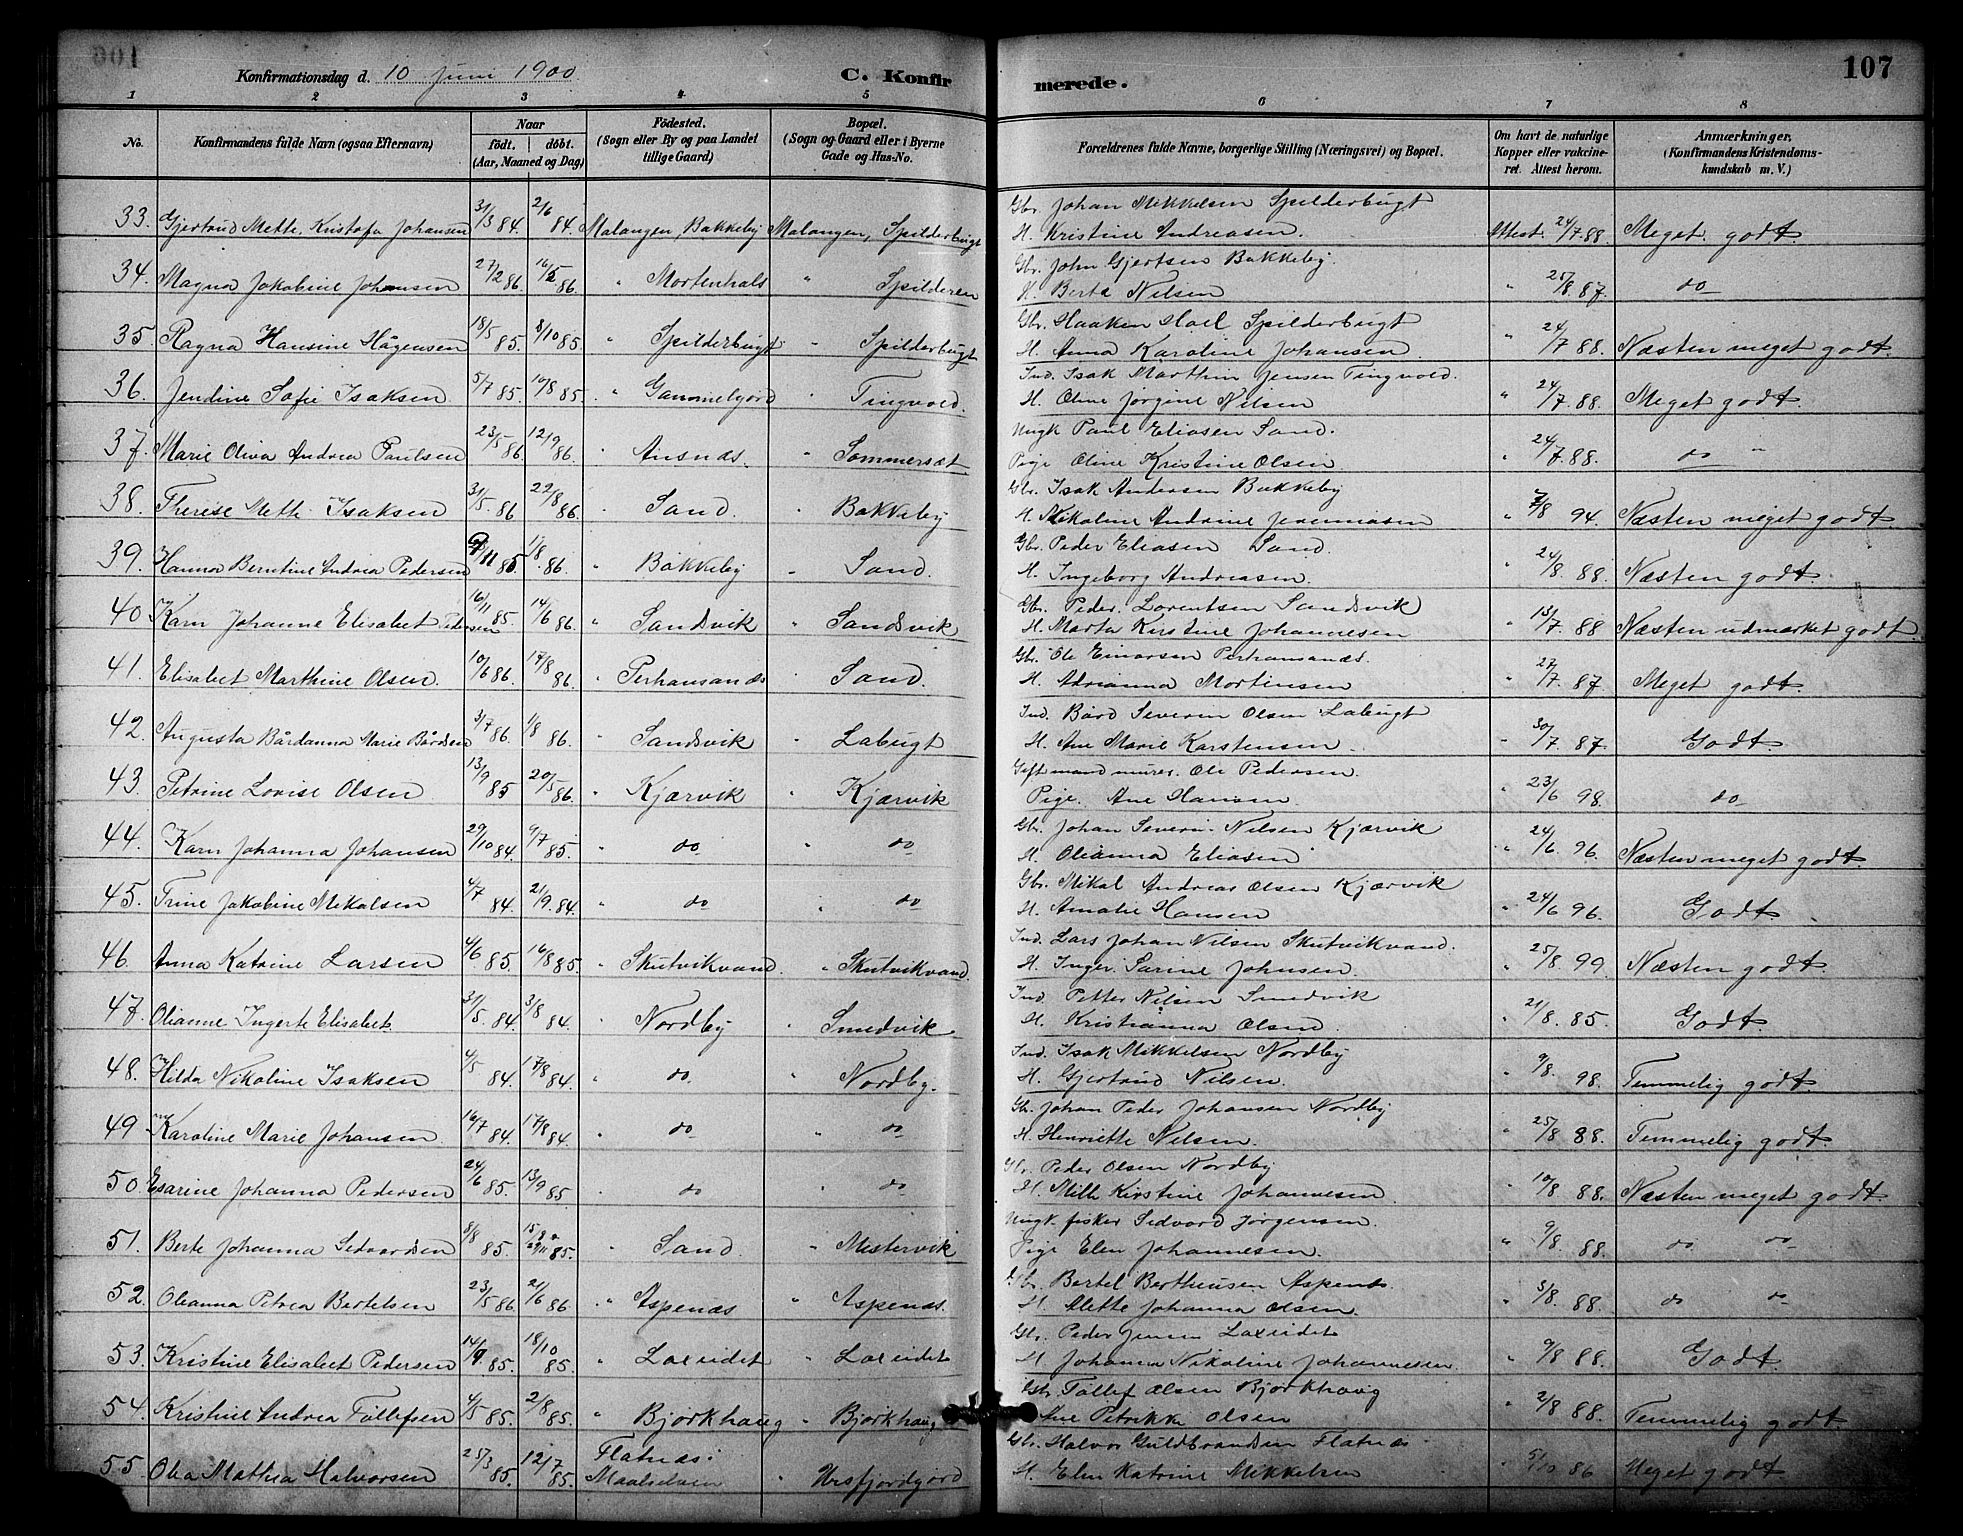 Konfirmationsdag d. 10 Juni 1900. C. Konfir merede. 107
1 2 3 4 5 6 7 8
No. Konfirmandens fulde Navn (ogsaa Efternavn) Naar født. døbt. (Aar, Maaned og Dag) Fødested. (Sogn eller By og paa Landet tillige Gaard) Bopæl. (Sogn og Gaard eller i Byerne Gade og Hus-No. Forældrenes fulde Navne, borgerlige Stilling (Næringsvei) og Bopæl. Om havt de naturlige Kopper eller vakcineret. Attest herom. Anmærkninger, (Konfirmandens Kristendomskundskab m. V.)
Gbr. Johan Mikkelsen Spilderbugt
33. Gjertrud Mette Kristofa Johansen 31/3 84. 2/6 84. Malangen, Bakkeby Malangen, Spilderbugt H. Kristine Andreasen. Attest. 24/7 88. Meget godt.
Gbr. John Gjertsen Bakkeby.
34. Magna Jakobine Johansen 27/2 86. 16/5 86. " Mortenhals " Spilderen H. Berte Nilsen " 25/8 87. do
Gbr. Haaken Hoel Spilderbugt
35. Ragna Hansine Hågensen 18/5 85. 8/10 85. " Spilderbugt " Spilderbugt H. Anna Karoline Johansen. " 24/7 88. Næsten meget godt.
Ind. Isak Marthin Jensen Tingvold.
36. Jendine Sofie Isaksen 5/7 85. 10/8 85. " Gammelgjord " Tingvold. H. Oline Jørgine Nilsen " 24/7 88. Meget godt.
Ungk Paul Eliasen Sand.
37. Marie Oliva Andrea Paulsen 23/5 86. 12/9 86. " Ansnæs. " Sommersæt Pige Oline Kristine Olsen " 24/7 88. do "
Gbr. Isak Andersen Bakkeby
38. Therese Mette Isaksen 31/5. 86 22/8 86. " Sand. " Bakkeby H. Nikoline Andrine Jeremiasen " 7/8 94. Næsten meget godt
Gbr. Peder Eliasen Sand.
39. Hanna Berntine Andrea Pedersen 9/11 85 1/8. 86. " Bakkeby " Sand. H. Ingeborg Andreasen. " 24/8. 88. Næsten godt.
Gbr. Peder. Lorentsen Sandsvik
40 Karn Johanne Elisabet Pedersen 16/11 85. 14/6 86. " Sandsvik " Sandsvik H. Marta Kirstine Johannesen " 13/7. 88 Næsten udmærket godt.
Gbr. Ole Einarsen Perhansanæs.
41. Elisabet Marthine Olsen. 10/6 86. 17/8 86. " Perhansanæs " Sand. H. Adrianna Mortinsen " 27/7. 87 Meget godt.
Ind. Bård Severin Olsen Labugt
42. Augusta Bårdanna Marie Bårdsen 3/7 86. 1/8 86. " Sandsvik " Labugt H. Ane Marie Karstensen. " 30/7. 87. Godt.
Gift mand murer. Ole Pedersen.
43. Petrine Lovise Olsen 13/9 85 20/5 86. " Kjærvik " Kjærvik Pige. Ane Hansen. " 23/6 98. do
Gbr. Johan Severin Nilsen Kjærvik
44. Karn Johanna Johansen 29/10 84. 9/7 85. " do " do H. Olianna Eliasen " 24/6 96. Næsten meget godt.
Gbr. Mikal Andreas Olsen Kjærvik
45. Trine Jakobine Mikalsen 4/7 84. 21/9. 84. " do " do H. Amalie Hansen " 24/6 96. Godt.
Ind. Lars Johan Nilsen Skutvikvand.
46. Anna Katrine Larsen 4/6. 85. 16/8 85. " Skutvikvand. " Skutvikvand H. Inger Sarine Johnsen. " 25/8 99 Næsten godt.
Ind. Petter Nilsen Smedvik
47. Olianne Ingerte Elisabet 31/5. 84. 3/8 84. " Nordby " Smedvik H. Kristianna Olsen. " 21/8. 85. Godt.
Ind. Isak Mikkelsen Nordby
48. Hilda Nikoline Isaksen 4/5 84. 17/8 84. " do " Nordby. H. Gjertrud Nilsen. " 9/8. 98. Temmelig godt.
Gbr. Johan Peder Johansen Nordby
49 Karoline Marie Johansen 16/7 84. 17/8 84. " do " do H. Henriette Nilsen. " 25/8 88. Temmelig godt.
Gbr. Peder Olsen Nordby
50 Esarine Johanna Pedersen 24/6 85. 13/9 85 " do " do H. Mille Kirstine Johannesen. " 10/8 88. Næsten meget godt.
Ungk. fisker Sedvard Jørgensen.
51. Berte Johanna Sedvardsen 8/8 85. " Sand. " Mestervik Pige Elen Johannesen. " 9/8. 88. do do
Gbr. Bertel Bertheusen Aspenæs
52. Olianna Petrea Bertelsen 23/5 86. 21/6 86. " Aspenæs " Aspenæs. H. Alette Johanna Olsen. " 3/8. 88. do do
Gbr. Peder Jensen Laxeidet
53. Kristine Elisabet Pedersen 14/9. 85. 18/10 85. " Laxeidet " Laxeidet H. Johanna Nikoline Johannesen. " 9/8 88. Godt.
Gbr. Tollef Olsen Bjørkhaug
54. Kristine Andrea Tollefsen 4/5 85. 2/8 85. " Bjørkhaug " Bjørkhaug Ane Petrikke Olsen " 2/8 88. Temmelig godt.
Gbr. Halvor Guldbrandsen Flatnæs
55. Olea Mathea Halvorsen 25/3 85. 12/7 85. Flatnæs. Maalselven " Ursfjordgjord H. Elen Katrine Mikkelsen " 5/10 86 Meget godt